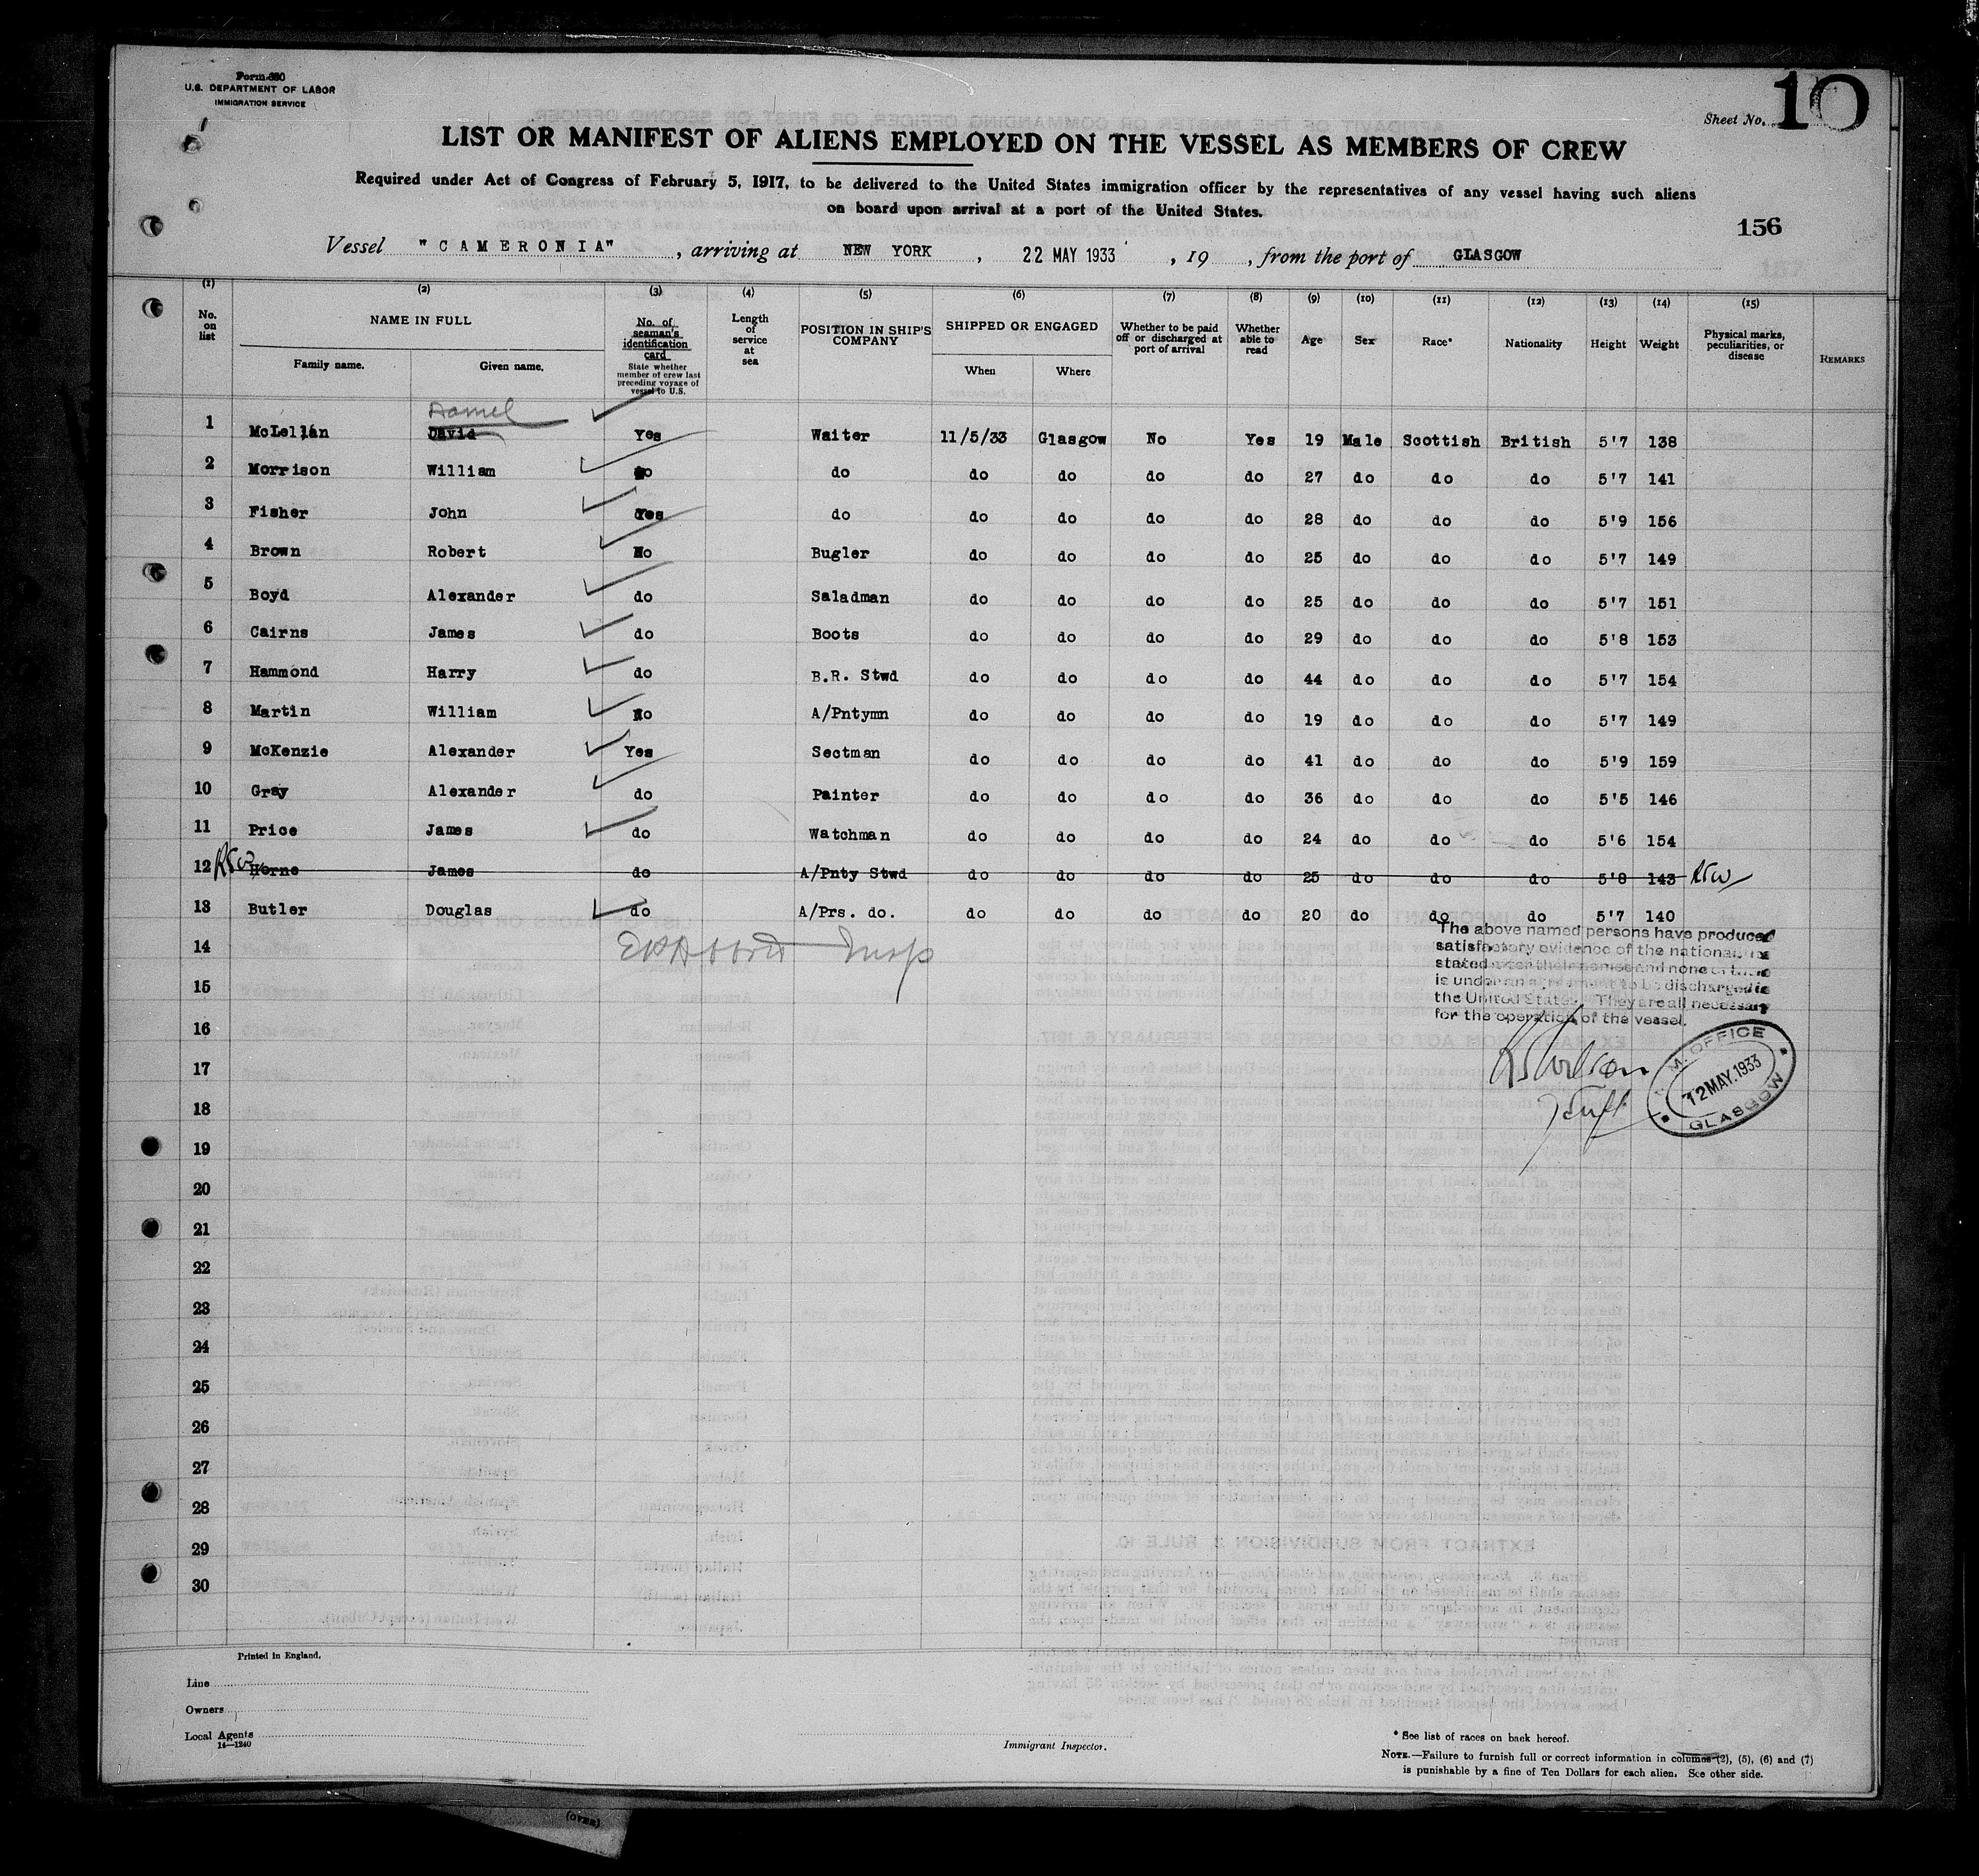 Form 680
U.S. DEPARTMENT OF LABOR
IMMIGRATION SERVICE
Sheet No. 10
LIST OR MANIFEST OF ALIENS EMPLOYED ON THE VESSEL AS MEMBERS OF CREW
Required under Act of Congress of February 5, 1917, to be delivered to the United States immigration officer by the representatives of any vessel having such aliens
on board upon arrival at a port of the United States.
156
Vessel "CAMERONIA", arriving at NEW YORK, 22 MAY 1933, 19 , from the port of GLASGOW
(1) (2) (3) (4) (5) (6) (7) (8) (9) (10) (11) (12) (13) (14) (15)
No. on list NAME IN FULL Family name. Given name. No. of seaman's identification card State whether member of crew last preceding voyage of vessel to U.S. Length of service at sea POSITION IN SHIP'S COMPANY SHIPPED OR ENGAGED When Where Whether to be paid off or discharged at port of arrival Whether able to read Age Sex Race* Nationality Height Weight Physical marks, peculiarities, or disease REMARKS
Daniel
1 McLellan David Yes Waiter 11/5/33 Glasgow No Yes 19 Male Scottish British 5'7 138
2 Morrison William do do do do do 27 do do do 5'7 141
3 Fisher John Yes do do do do do 28 do do do 5'9 156
4 Brown Robert No Bugler do do do do 25 do do do 5'7 149
5 Boyd Alexander do Saladman do do do do 25 do do do 5'7 151
6 Cairns James do Boots do do do do 29 do do do 5'8 153
7 Hammond Harry do B.R. Stwd do do do do 44 do do do 5'7 154
8 Martin William No A/Pntymn do do do do 19 do do do 5'7 149
9 McKenzie Alexander Yes Sectman do do do do 41 do do do 5'9 159
10 Gray Alexander do Painter do do do do 36 do do do 5'5 146
11 Price James do Watchman do do do do 24 do do do 5'6 154
12 RSW Horne James do A/Pnty Stwd do do do do 25 do do do 5'8 143 RSW
13 Butler Douglas do A/Prs. do. do do do do 20 do do do 5'7 140
14 Insp
The above named persons have produced
satisfactory evidence of the nationalities
stated after their names and none of them
is under an agreement to be discharged in
the United States. They are all necessary
for the operation of the vessel.
15
16
17
18
M. OFFICE
12 MAY. 1933
GLASGOW
19
20
21
22
23
24
25
26
27
28
29
30
Printed in England.
Line
Owners
Local Agents
14—1240
Immigrant Inspector.
* See list of races on back hereof.
NOTE.—Failure to furnish full or correct information in columns (2), (5), (6) and (7)
is punishable by a fine of Ten Dollars for each alien. See other side.
(OVER)